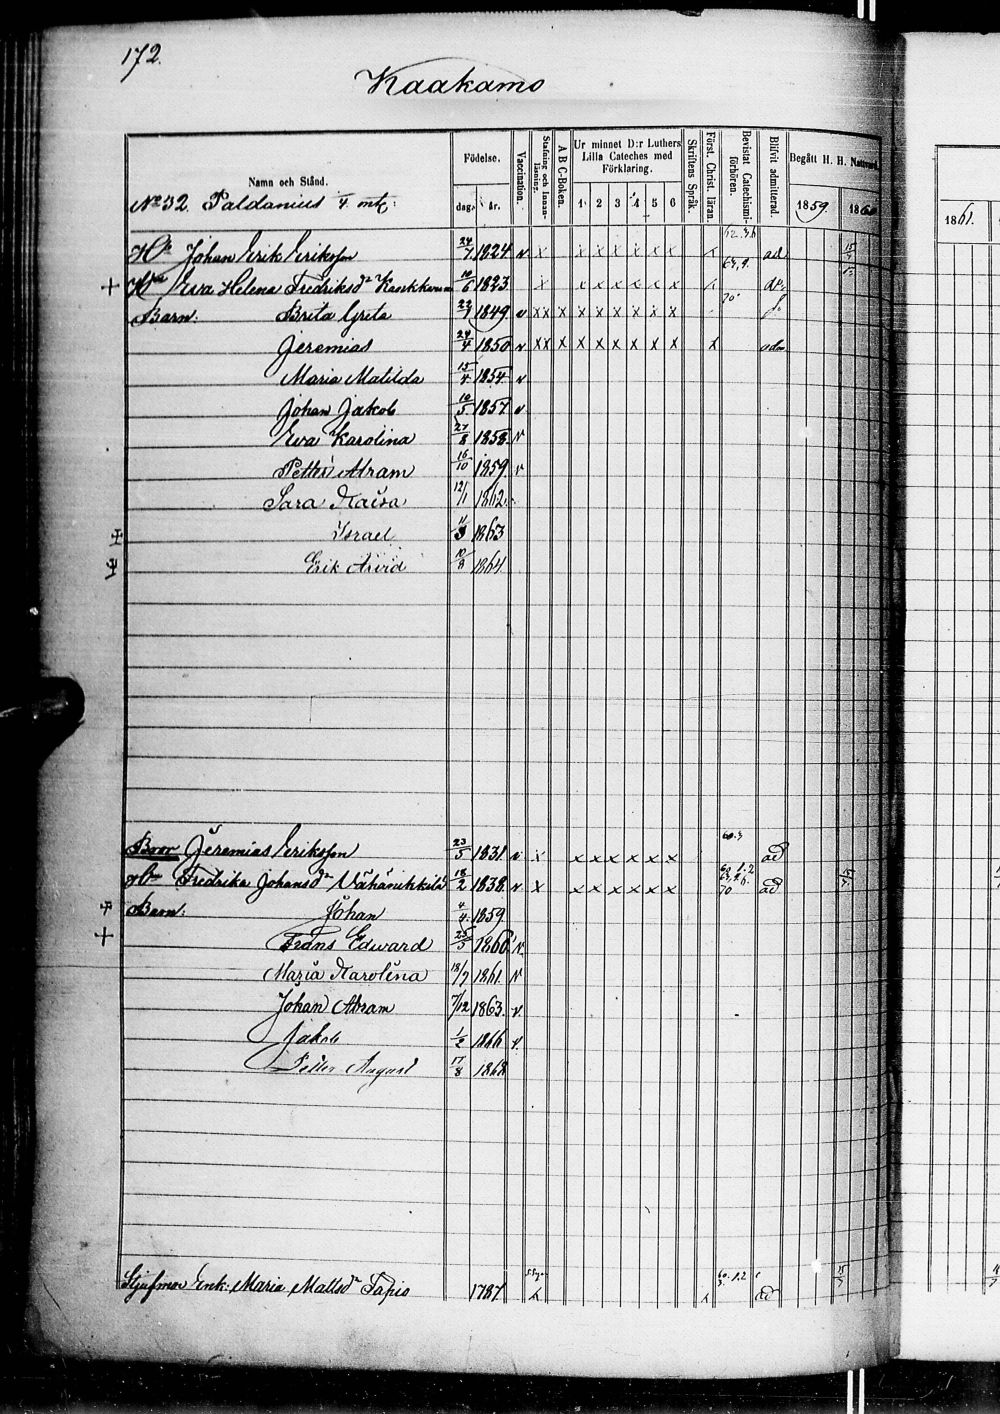 172.
Kaakamo
Namn och Stånd.
Födelse.
dag. år.
Vaccination.
Stafning och Innanläsning.
A B C-Boken.
Ur minnet D:r Luthers Lilla Cateches med Förklaring.
1 2 3 4 5 6
Skriftens Språk.
Först. Christ. läran.
Bevistat Catechismiförhören.
Blifvit admitterad.
Begått H. H. Nattvard.
1859. 1860
1861.
No 32. Paldanius
Johan Erik Eriksson 24/7 1824 v x x x x x x x x 62.3.6 ad 15/7
+ Eva Helena Fredriksdr 10/6 1823 x x x x x x x
Barn: Brita Greta 1849 v x x x x x x x x x 70
Jeremias 24/4 1850 v x x x x x x x x x x
Maria Matilda 15/4 1854 v
Johan Jakob 10/5 1857 v
Eva Karolina 27/8 1858 v
Petter Abram 16/10 1859. v
Sara Kaisa 12/1 1862.
Israel 1863
Erik Arvid 1864
Bror Jeremias Eriksson 23/5 1831 v x x x x x x x 60.3 ad
Fredrika Johansdr 18/2 1838 v x x x x x x x 70 ad 15/7
Barn: Johan 4/4 1859
+ Frans Edward 25/5 1860 v
Maria Karolina 18/7 1861 v
Johan Abram 7/12 1863. v.
Jakob 1/2 1866 v.
Petter August 17/8 1868
Stjufmor Enk: Maria Mattsdr Tapio 1787 x x 60.1.2 ad